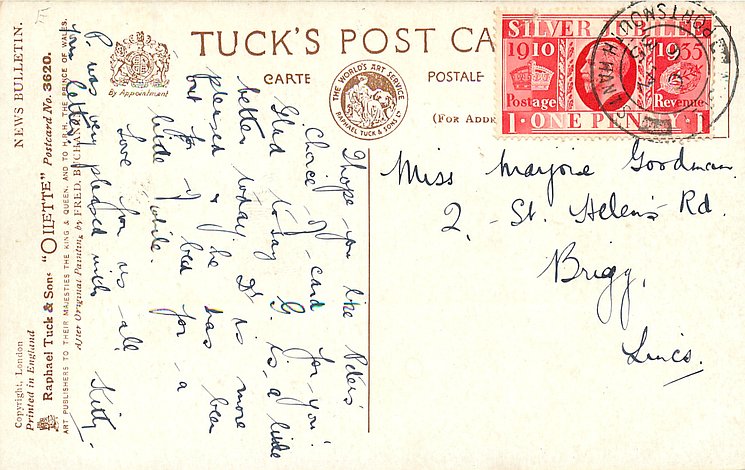 NEWS BULLETIN.
TUCK'S POST CA
CARTE
POSTALE
(FOR ADDR
By Appointment
THE WORLD'S ART SERVICE
RAPHAEL TUCK & SONS LTD
SILVER JUBILEE
1910 1935
Postage Revenue
1 · ONE PENNY · 1
PORTSMOUTH
HANTS
Miss Marjorie Goodman.
2. St. Helen's Rd.
Brigg,
Lincs.
I hope you like Peter's
choice of card for you!
Glad to say G. is a little
better today. Dr is more
pleased & he has been
out of bed for a
little while.
Love from us all
Kitty.
P. was very pleased with
your letter.
Copyright, London
Printed in England
Raphael Tuck & Sons "OILETTE" Postcard No. 3620.
ART PUBLISHERS TO THEIR MAJESTIES THE KING & QUEEN, AND TO H.R.H. THE PRINCE OF WALES.
After Original Painting by FRED.